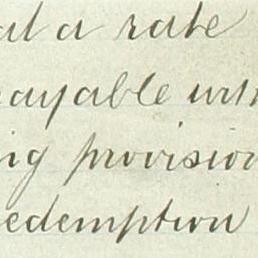 at a rate
payable with
ing provision
redemption